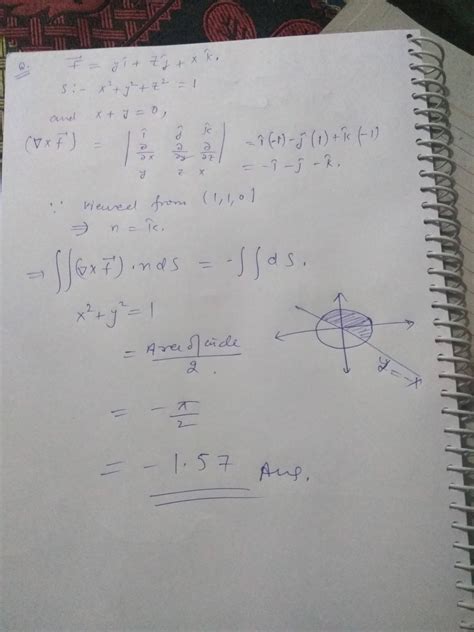 Q. f⃗ = yî + zĵ + xk̂.
S:- x² + y² + z² = 1
and x + y = 0,
(∇×f⃗) = | î ĵ k̂ | = î(-1) - ĵ(1) + k̂(-1)
| ∂/∂x ∂/∂y ∂/∂z | = -î - ĵ - k̂.
| y z x |
∵ viewed from (1,1,0)
⇒ n = k̂.
⇒ ∬(∇×f⃗)·n dS = -∬dS.
x² + y² = 1
= Area of circle / 2.
y = -x
= -π/2
= -1.57 Ans.